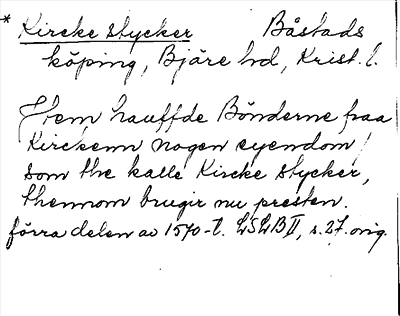 * Kircke stycker Båstads
köping, Bjäre hd, Krist. l.
Item hauffde Bönderne fraa
Kirckenn nogen eyendom
som the kalle Kircke stycker,
thennom brugir nu presten.
förra delen av 1570-t. LSLB II, s. 27. orig.